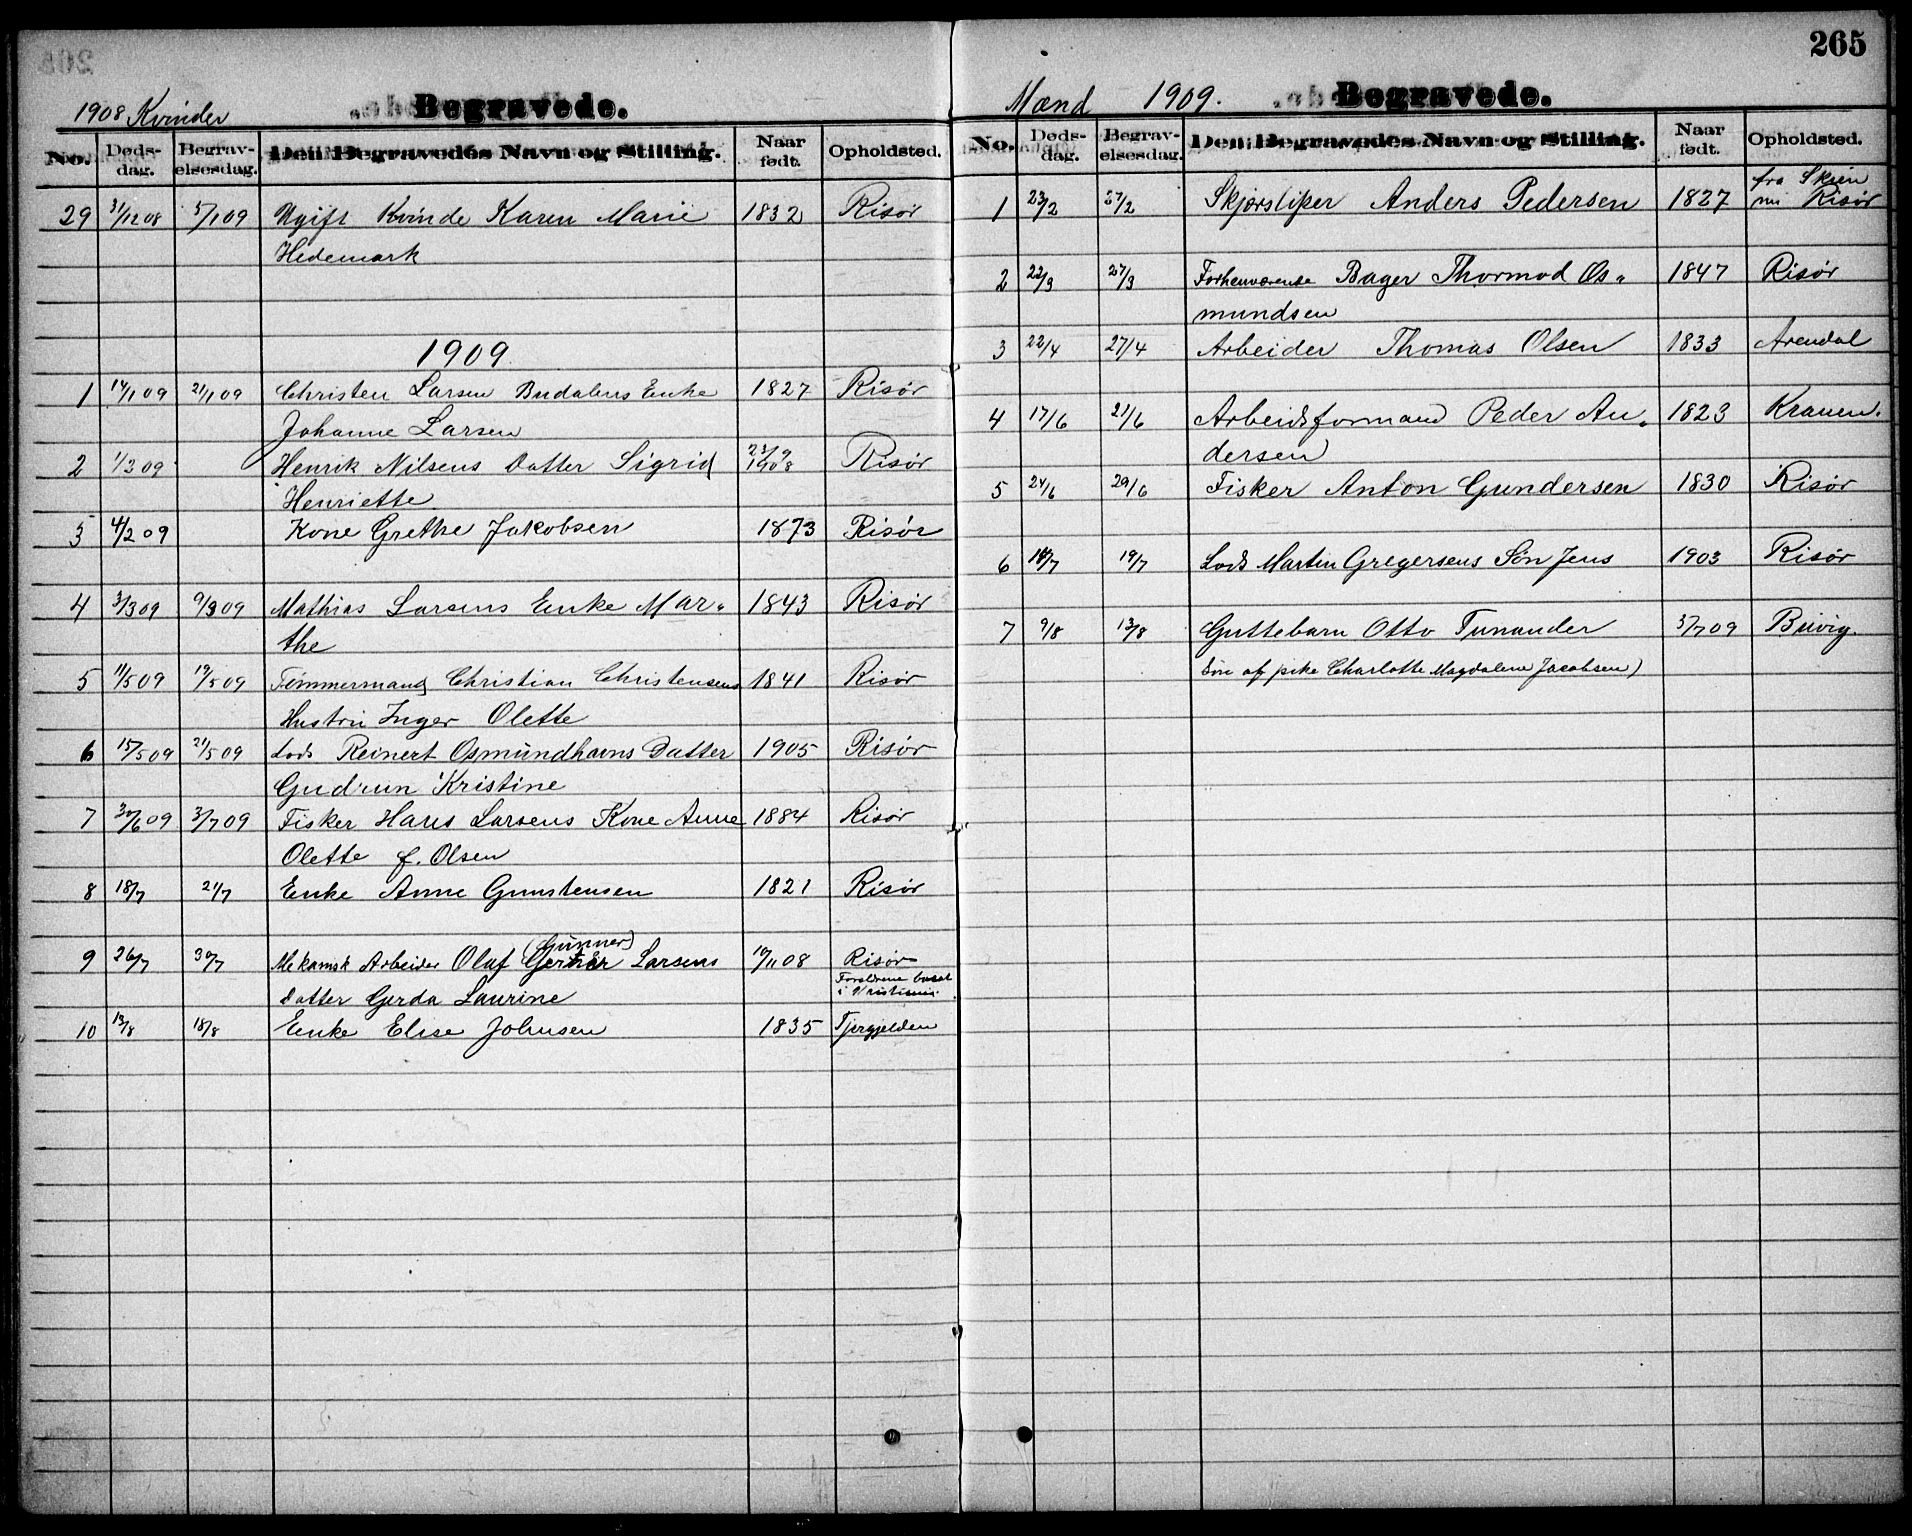 1908 Kvinder Begravede.
No. Døds-dag. Begrav-elsesdag. Den Begravedes Navn og Stilling. Naar født. Opholdsted.
29 31/12 08 5/1 09 Ugift Kvinde Karen Marie 1832 Risør
Hedemark
1909.
1 14/1 09 21/1 09 Christen Larsen Budalens Enke 1827 Risør
Johanne Larsen
2 1/2 09 Henrik Nilsens Datter Sigrid 23/9 1908 Risør
Henriette
3 4/2 09 Kone Grethe Jakobsen 1873 Risør
4 3/3 09 9/3 09 Mathias Larsens Enke Mar- 1843 Risør
the
5 11/5 09 19/5 09 Tømmermand Christian Christensens 1841 Risør
Hustru Inger Olette
6 15/5 09 21/5 09 Lods Reinert Osmundhavns Datter 1905 Risør
Gudrun Kristine
7 30/6 09 3/7 09 Fisker Hans Larsens Kone Anne 1884 Risør
Olette f. Olsen
8 18/7 21/7 Enke Anne Gunstensen 1821 Risør
(Gunner)
9 26/7 30/7 Mekanisk Arbeider Olaf Larsens 19/11 08 Risør
Datter Gerda Laurine Forældrene bosat
i Kristiania.
10 13/8 18/8 Enke Elise Johnsen 1835 Tjergjelden
265
Mænd 1909. Begravede.
No. Døds-dag. Begrav-elsesdag. Den Begravedes Navn og Stilling. Naar født. Opholdsted.
fra Skien
1 23/2 27/2 Skjærsliper Anders Pedersen 1827 nu Risør
2 22/3 27/3 Forhenværende Bager Thormod Os- 1847 Risør
mundsen
3 22/4 27/4 Arbeider Thomas Olsen 1833 Arendal
4 17/6 21/6 Arbeidsformand Peder An- 1823 Kranen.
dersen
5 24/6 29/6 Fisker Anton Gundersen 1830 Risør
6 14/7 19/7 Lods Martin Gregersens Søn Jens 1903 Risør
7 9/8 13/8 Guttebarn Otto Tunander 3/7 09 Buvig.
Søn af pike Charlotte Magdalene Jacobsen)